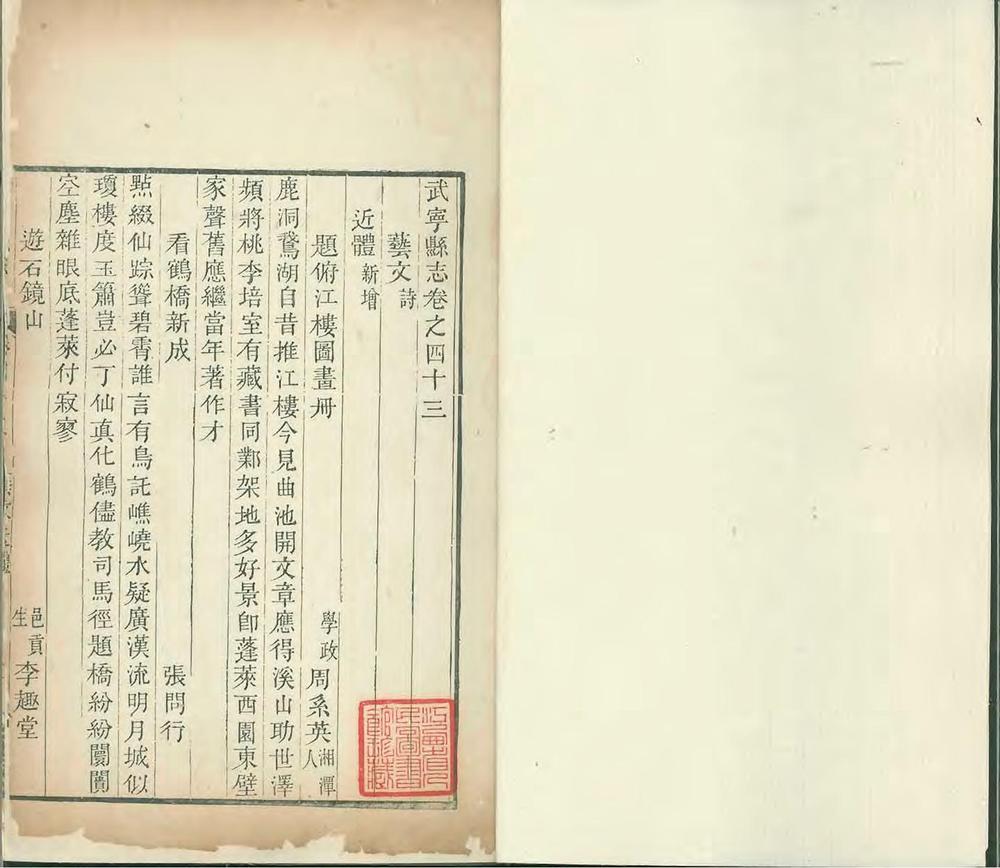 武寧縣志卷之四十三
藝文詩
近體新增
題俯江樓圖畫冊 學政周系英湘潭人
鹿洞鵞湖自昔推江樓今見曲池開文章應得溪山助世澤
頻將桃李培室有藏書同鄴架地多好景卽蓬萊西園東壁
家聲舊應繼當年著作才
看鶴橋新成 張問行
點綴仙踪聳碧霄誰言有鳥託嶕嶢水疑廣漢流明月城似
瓊樓度玉簫豈必丁仙真化鶴儘教司馬徑題橋紛紛闤闠
空塵雜眼底蓬萊付寂寥
遊石鏡山 邑貢生李趣堂